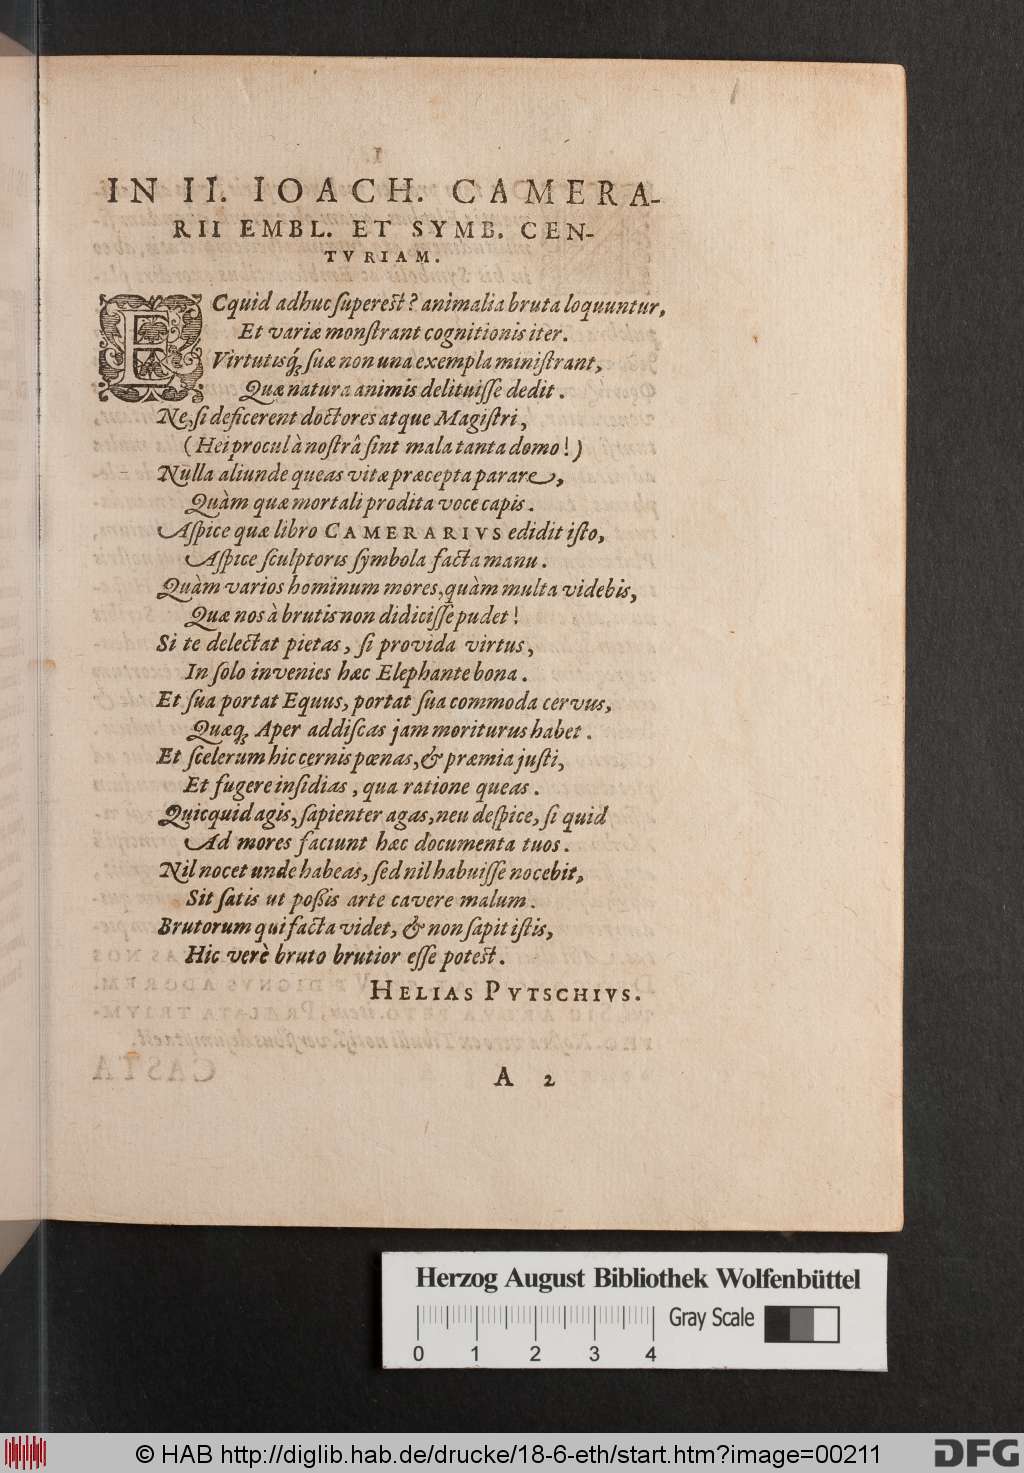 IN II. IOACH. CAMERA-
RII EMBL. ET SYMB. CEN-
TVRIAM.
ECquid adhuc ſupereſt? animalia bruta loquuntur,
Et variæ monſtrant cognitionis iter.
Virtutisq́; ſuæ non una exempla miniſtrant,
Quæ natura animis delituiſſe dedit.
Ne, ſi deficerent doctores atque Magiſtri,
(Hei procul à noſtrâ ſint mala tanta domo!)
Nulla aliunde queas vitæ præcepta parare,
Quàm quæ mortali prodita voce capis.
Aſpice quæ libro CAMERARIVS edidit iſto,
Aſpice ſculptoris ſymbola facta manu.
Quàm varios hominum mores, quàm multa videbis,
Quæ nos à brutis non didiciſſe pudet!
Si te delectat pietas, ſi provida virtus,
In ſolo invenies hæc Elephante bona.
Et ſua portat Equus, portat ſua commoda cervus,
Quæq; Aper addiſcas jam moriturus habet.
Et ſcelerum hic cernis pœnas, & præmia juſti,
Et fugere inſidias, qua ratione queas.
Quicquid agis, ſapienter agas, neu deſpice, ſi quid
Ad mores faciunt hæc documenta tuos.
Nil nocet unde habeas, ſed nil habuiſſe nocebit,
Sit ſatis ut poßis arte cavere malum.
Brutorum qui facta videt, & non ſapit iſtis,
Hic verè bruto brutior eſſe poteſt.
HELIAS PVTSCHIVS.
A 2
Herzog August Bibliothek Wolfenbüttel
Gray Scale
0 1 2 3 4
© HAB http://diglib.hab.de/drucke/18-6-eth/start.htm?image=00211
DFG